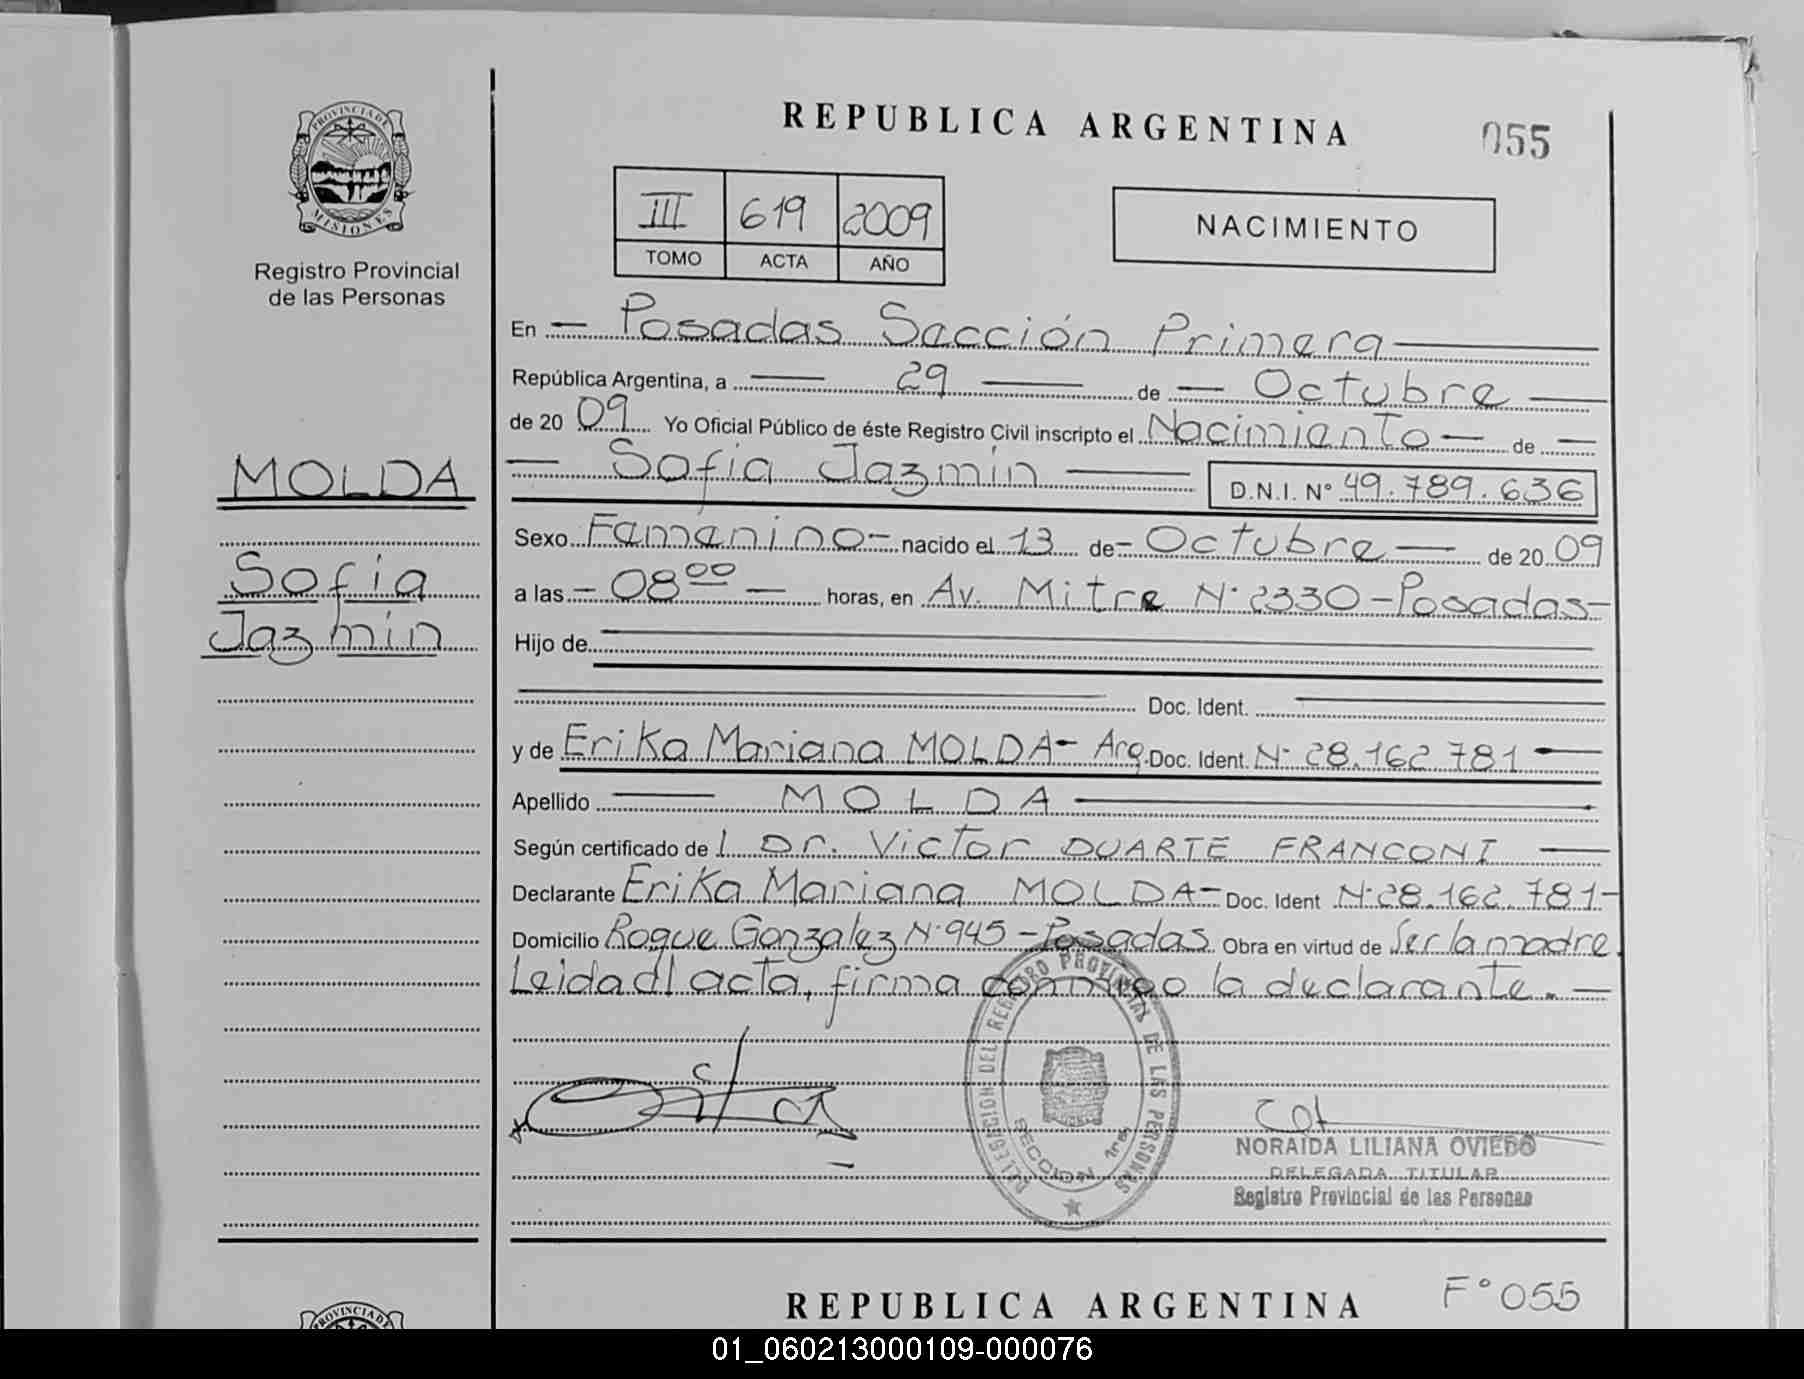 REPUBLICA ARGENTINA
055
PROVINCIA DE MISIONES
Registro Provincial
de las Personas
III 619 2009
TOMO ACTA AÑO
NACIMIENTO
En — Posadas Sección Primera —
República Argentina, a — 29 — de — Octubre —
de 20 09 Yo Oficial Público de éste Registro Civil inscripto el Nacimiento — de —
— Sofia Jazmín — D.N.I. N° 49.789.636
MOLDA
Sofia
Jazmín
Sexo Femenino - nacido el 13 de - Octubre — de 20 09
a las - 08 00 — horas, en Av. Mitre N° 2330 - Posadas -
Hijo de
Doc. Ident.
y de Erika Mariana MOLDA - Arg. Doc. Ident. N° 28.162.781 —
Apellido — MOLDA —
Según certificado de l Dr. Victor DUARTE FRANCONI —
Declarante Erika Mariana MOLDA - Doc. Ident N° 28.162.781 -
Domicilio Roque Gonzalez N° 945 - Posadas Obra en virtud de Ser la madre.
Leida el acta, firma conmigo la declarante. —
DELEGACION DEL REGISTRO PROVINCIAL DE LAS PERSONAS
SECCION 1ra.
NORAIDA LILIANA OVIEDO
DELEGADA TITULAR
Registro Provincial de las Personas
REPUBLICA ARGENTINA
F° 055
PROVINCIA DE
01_060213000109-000076